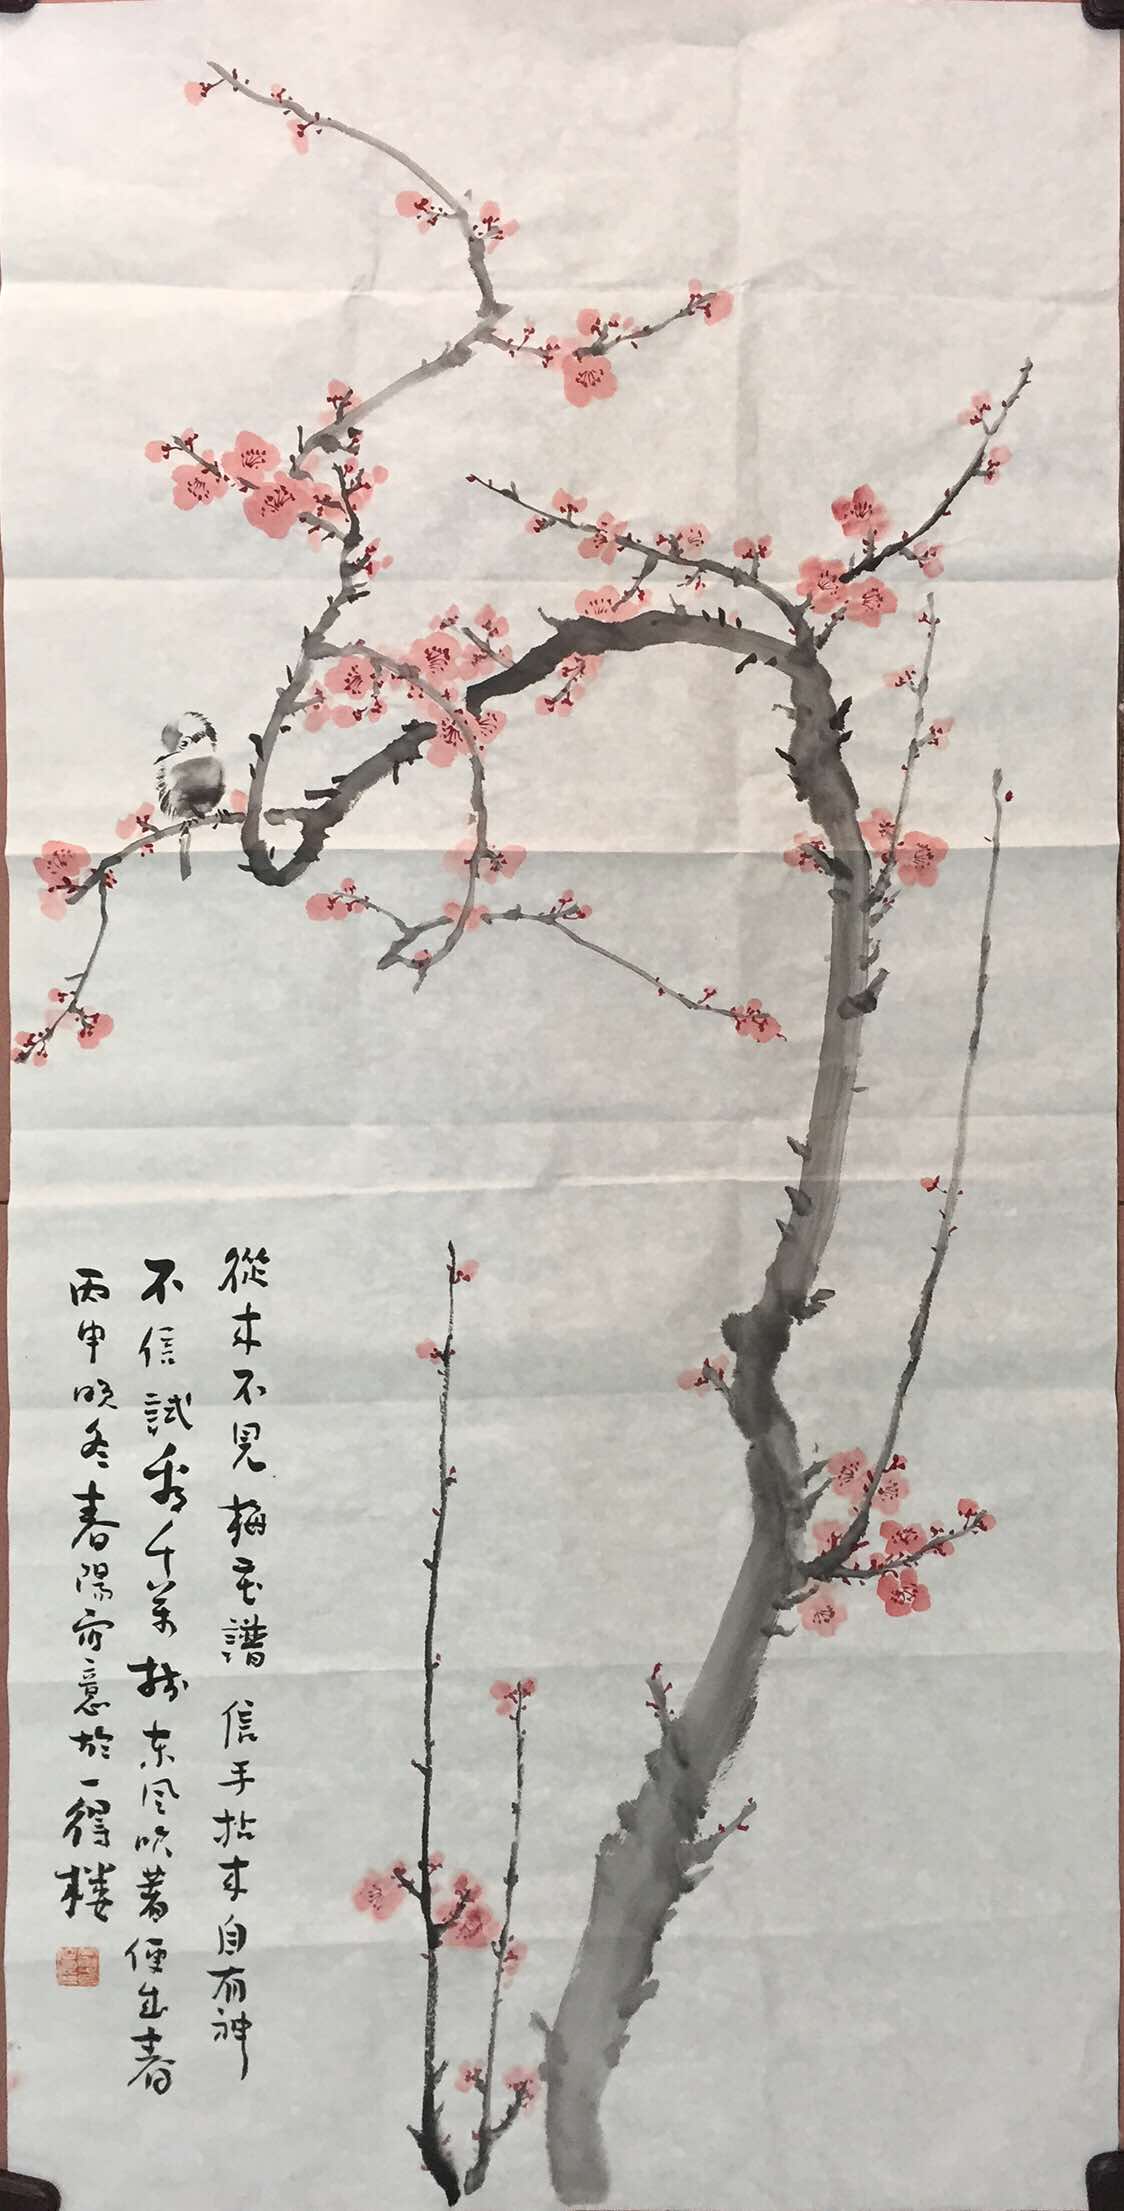 從来不見梅花譜信手拈来自有神
不信試看千万树東风吹著便成春
丙申晚冬春陽寫意於一得楼